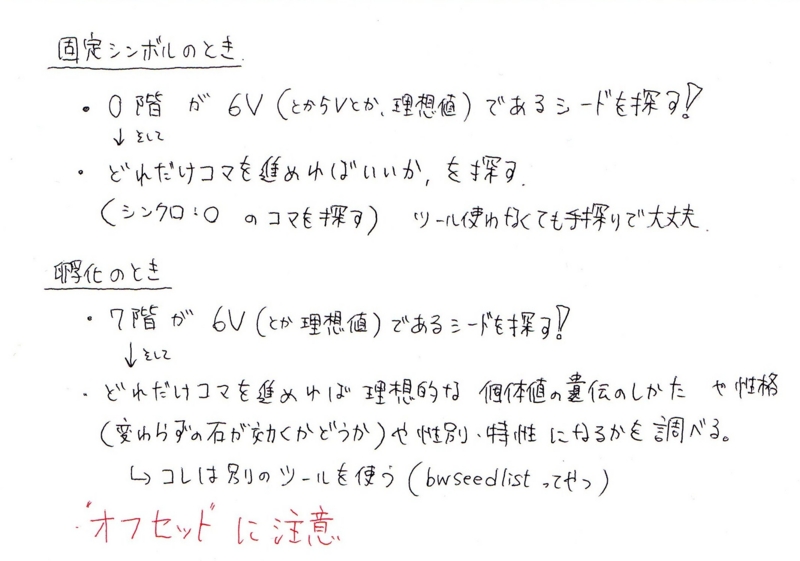 固定シンボルのとき
・0階 が 6V (とからVとか、理想値) であるシードを探す!
↓そして
・どれだけコマを進めればいいか, を探す.
(シンクロ:○ のコマを探す) ツール使わなくても手探りで大丈夫.
孵化のとき
・7階が 6V (とか理想値) であるシードを探す!
↓そして
・どれだけコマを進めれば 理想的な 個体値の遺伝のしかた や性格
(変わらずの石が効くかどうか)や性別・特性になるかを調べる。
↳コレは別のツールを使う (bwseedlistってやつ)
"オフセット"に注意